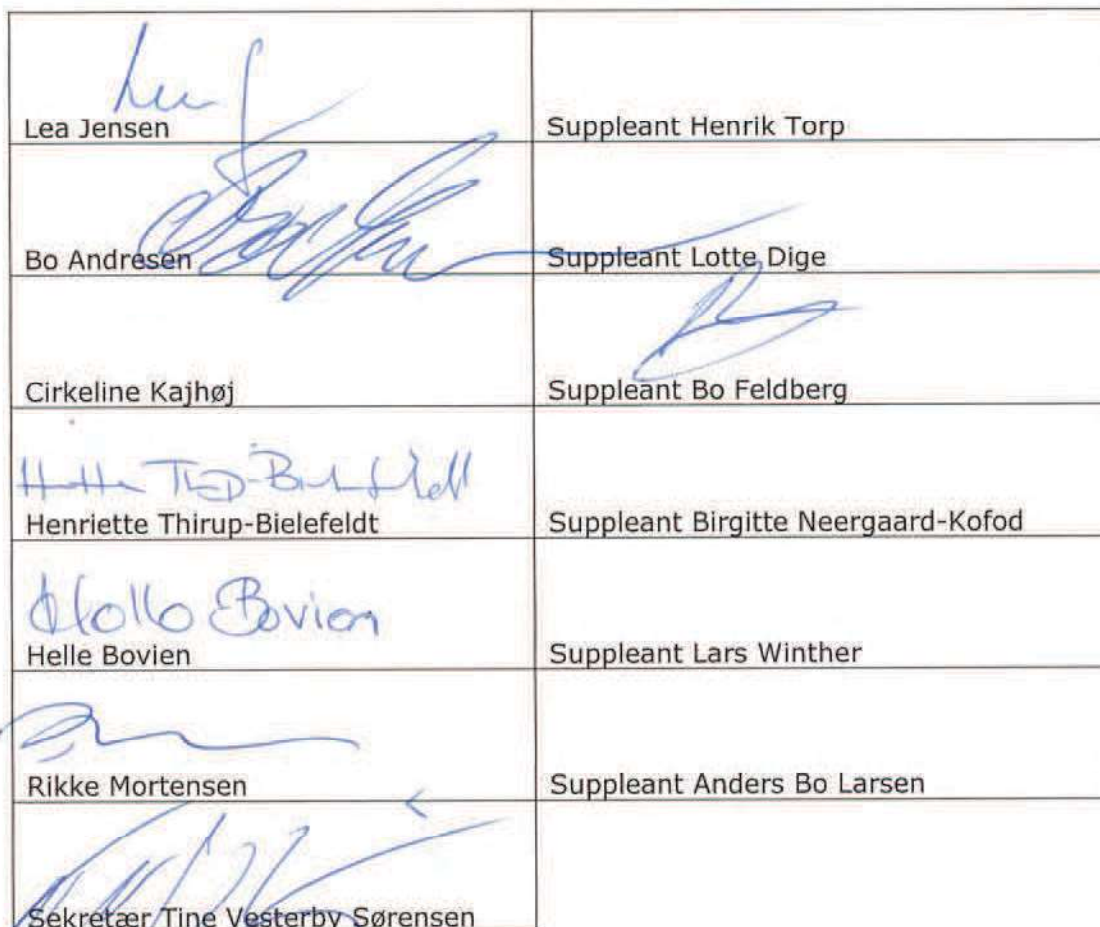 Lea Jensen
Suppleant Henrik Torp
Bo Andresen
Suppleant Lotte Dige
Cirkeline Kajhøj
Suppleant Bo Feldberg
Henriette Thirup-Bielefeldt
Suppleant Birgitte Neergaard-Kofod
Helle Bovien
Helle Bovien
Suppleant Lars Winther
Rikke Mortensen
Suppleant Anders Bo Larsen
Sekretær Tine Vesterby Sørensen